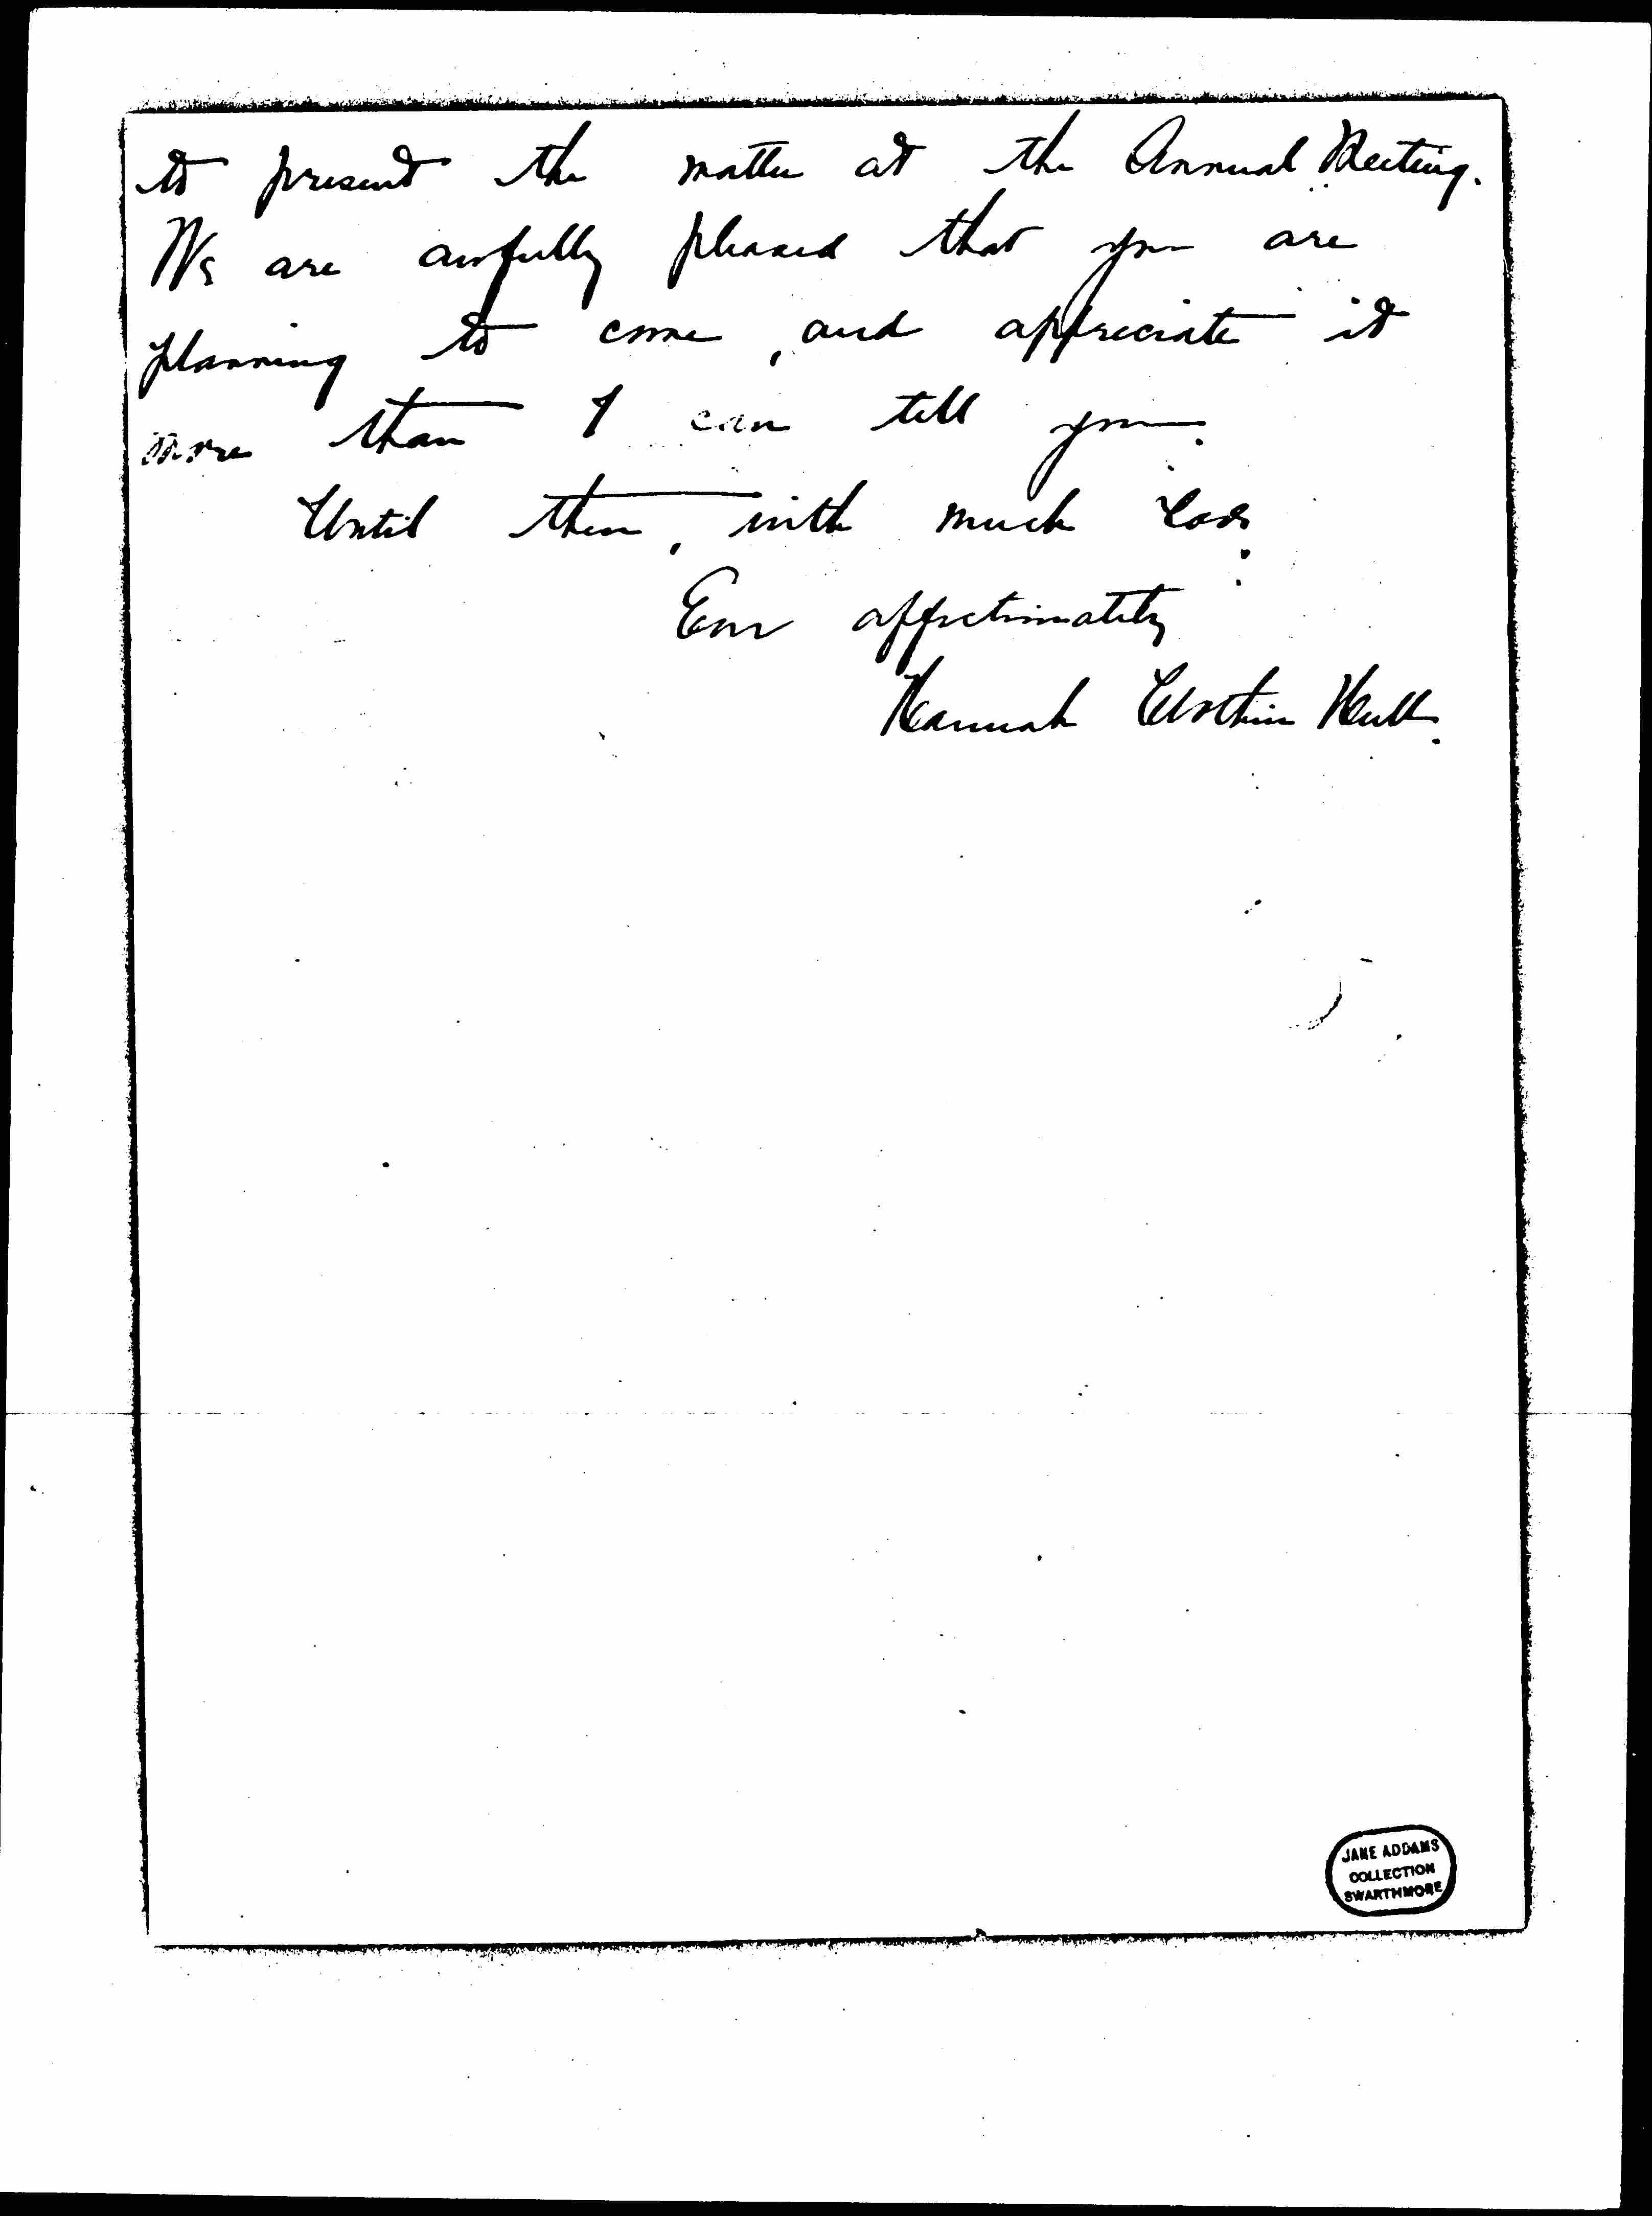 to present the matter at the Annual Meeting.
We are awfully pleased that you are
planning to come, and appreciate it
more than I can tell you.
Until then, with much love
Ever affectionately
Hannah Clothier Hull.
JANE ADDAMS
COLLECTION
SWARTHMORE